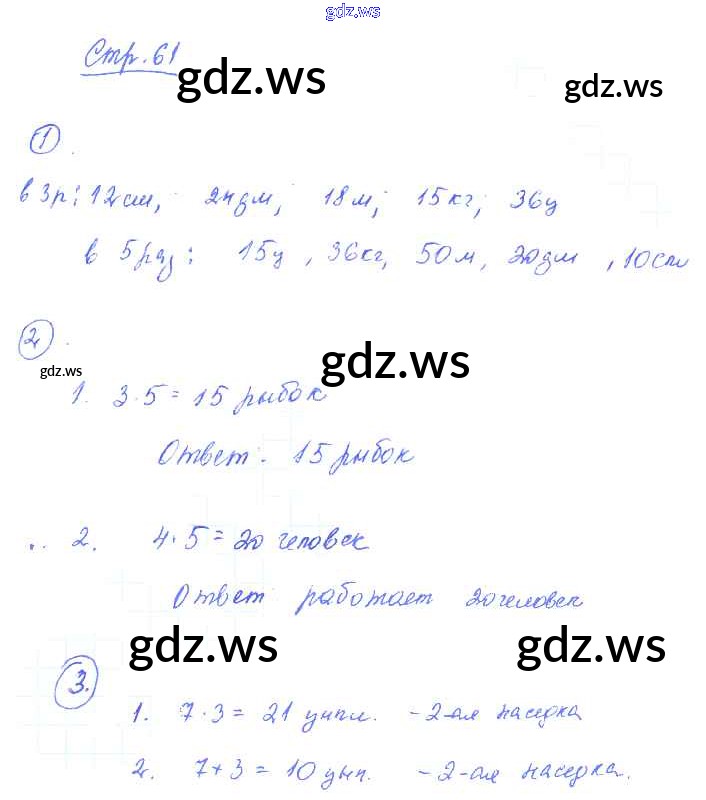 gdz.ws
Стр. 61
gdz.ws
gdz.ws
1.
в 3р: 12см, 24дм; 18м; 15кг; 36ц
в 5раз: 15ц, 36кг, 50м, 20дм, 10см
2.
gdz.ws
gdz.ws
1. 3·5=15 рыбок
Ответ: 15 рыбок
2. 4·5=20 человек
Ответ работает 20 человек
gdz.ws
gdz.ws
3.
1. 7·3=21 - 2-ая наседка
2. 7+3=10 - 2-ая наседка.